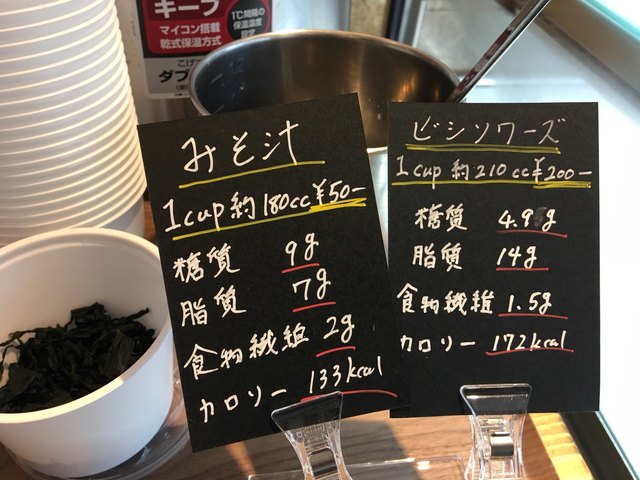 キープ
マイコン搭載
乾式保温方式
1℃間隔の
保温温度
設定
みそ汁
1cup 約180cc ¥50-
糖質 9g
脂質 7g
食物繊維 2g
カロリー 133kcal
ビシソワーズ
1cup 約210cc ¥200-
糖質 4.9g
脂質 14g
食物繊維 1.5g
カロリー 172kcal